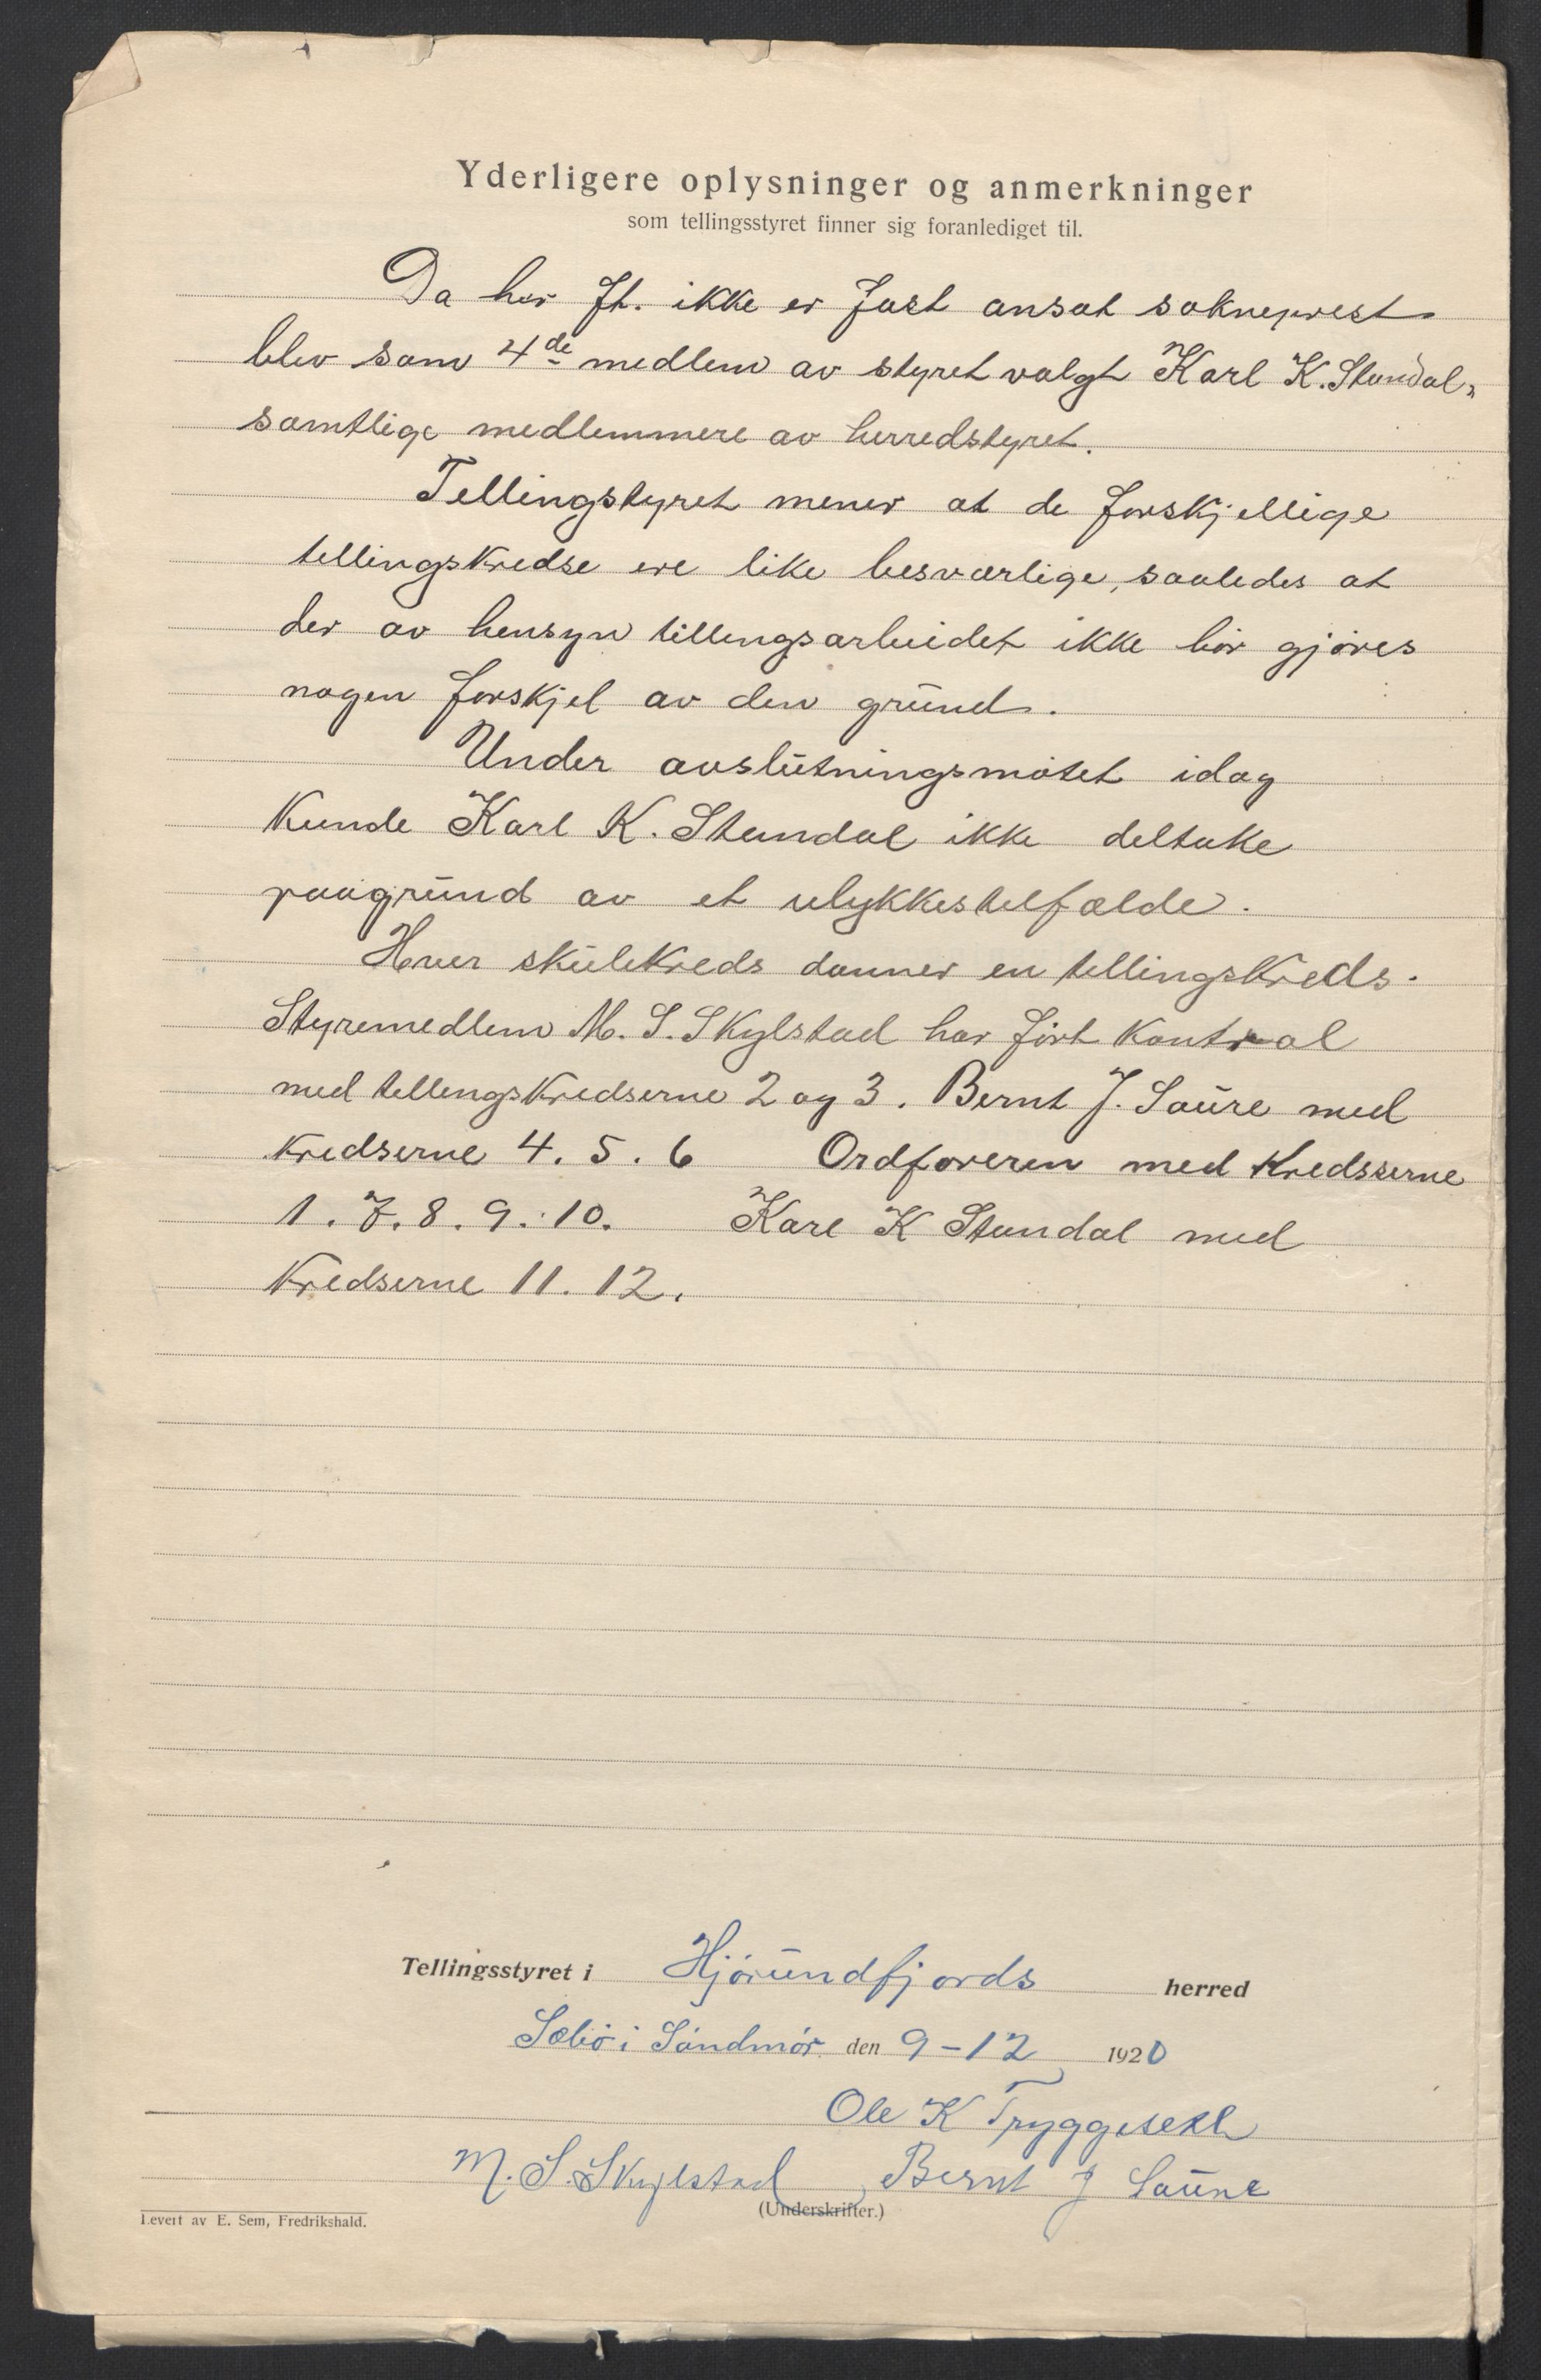 Yderligere oplysninger og anmerkninger
som tellingsstyret finner sig foranlediget til.
Da her ft. ikke er fast ansat sokneprest
blev som 4de medlem av styret valgt Karl K. Standal,
samtlige medlemmere av herredstyret.
Tellingstyret mener at de forskjellige
tellingskredse ere like besværlige, saaledes at
der av hensyn tillingsarbeidet ikke bør gjøres
nogen forskjel av den grund.
Under avslutningsmøtet idag
kunde Karl K. Standal ikke deltake
paagrund av et ulykkestilfælde.
Hver skulekreds danner en tellingskreds.
Styremedlem M. S. Skylstad har ført kontrol
med tellingskredserne 2 og 3. Bernt J. Saure med
kredserne 4. 5. 6 Ordføreren med kredserne
1. 7. 8. 9. 10. Karl K Standal med
kredserne 11. 12.
Tellingsstyret i Hjørundfjords herred
Sæbø i Søndmør den 9-12 1920
Ole K Tryggesett
M. S. Skylstad Bernt J Saure
(Underskrifter.)
Levert av E. Sem, Fredrikshald.